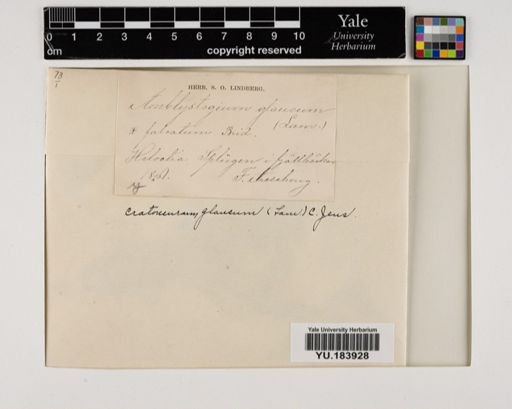 0 1 2 3 4 5 6 7 8 9 10
cm
copyright reserved
Yale
University
Herbarium
73
1
HERB. S. O. LINDBERG.
Amblystegium glaucum
(Lam.)
* falcatum Brid.
Helvetia Splügen i fjällbäckar
Cratoneuron glaucum (Lam.) C. Jens.
Yale University Herbarium
YU.183928